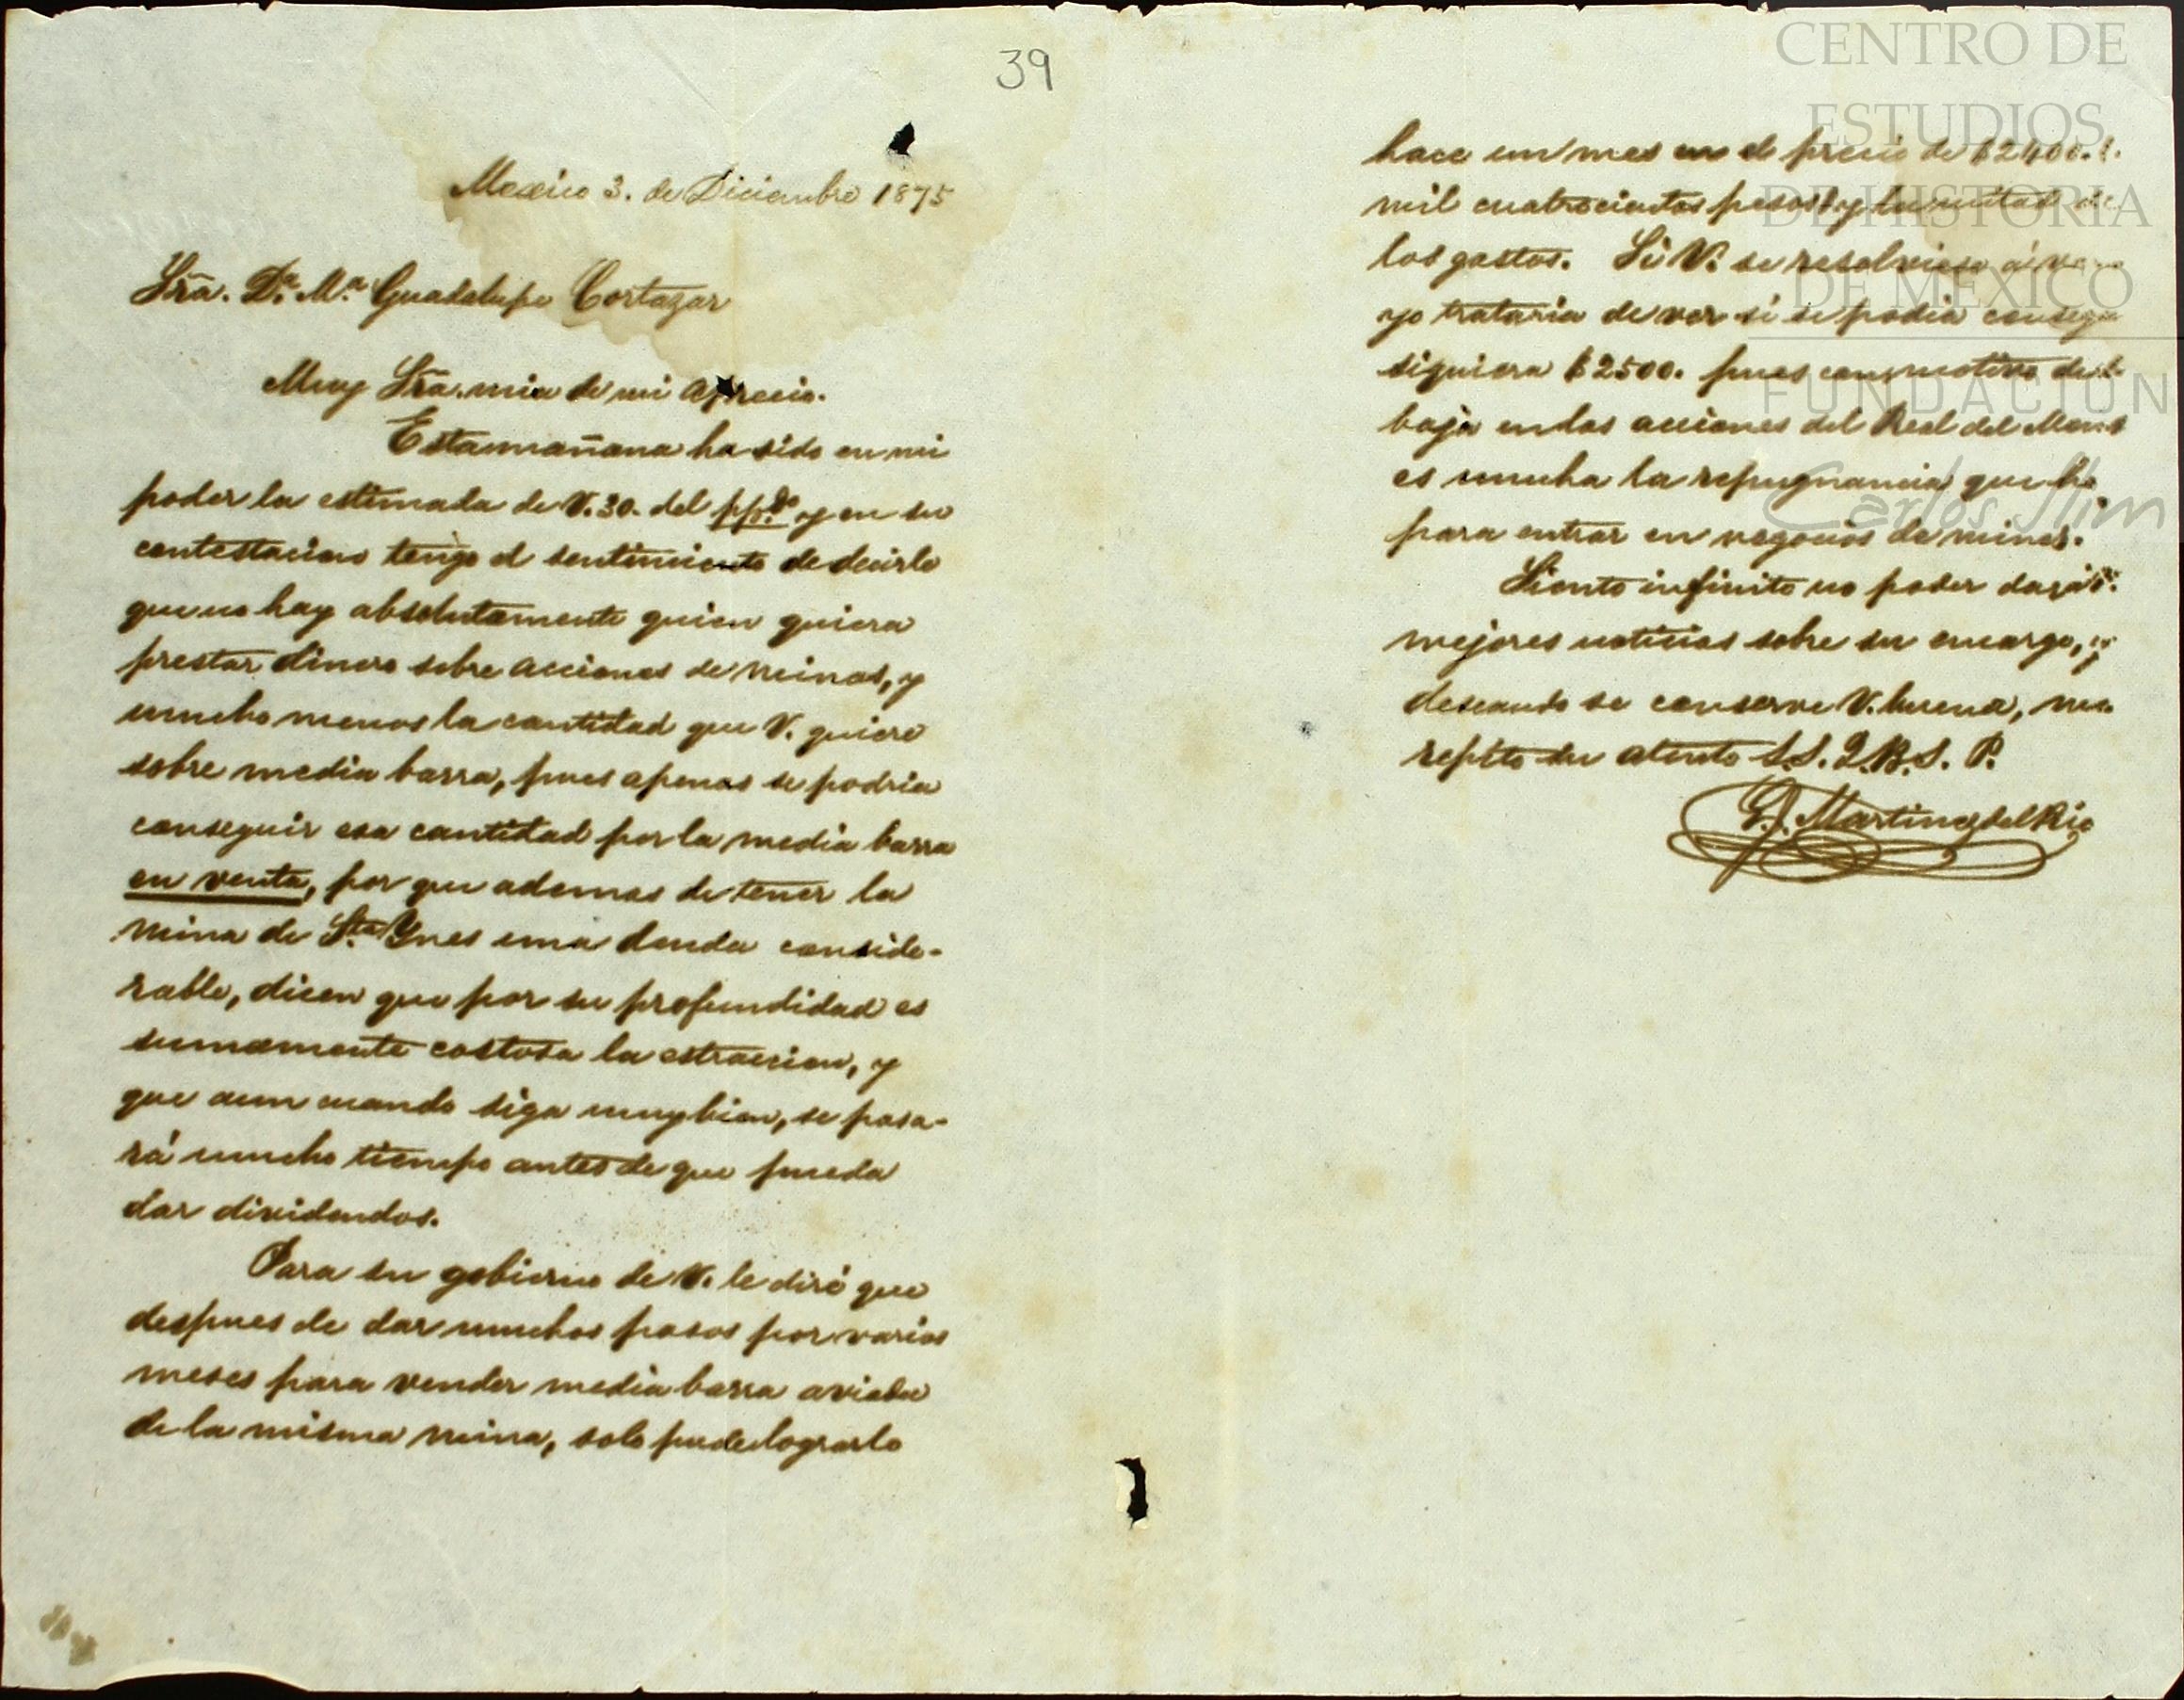 39
Mexico 3. de Diciembre 1875
Sra. Da. Ma. Guadalupe Cortazar
Muy Sra. mia de mi aprecio.
Esta mañana ha sido en mi
poder la estimada de V. 30. del pp.do y en su
contestacion tengo el sentimiento de decirle
que no hay absolutamente quien quiera
prestar dinero sobre acciones de minas, y
mucho menos la cantidad que V. quiere
sobre media barra, pues apenas se podria
conseguir esa cantidad por la media barra
en venta, por que ademas de tener la
mina de Sta. Ynes una deuda conside-
rable, dicen que por su profundidad es
sumamente costosa la estraccion, y
que aun cuando siga muy bien, se pasa-
rá mucho tiempo antes de que pueda
dar dividendos.
Para su gobierno de V. le diré que
despues de dar muchos pasos por varios
meses para vender media barra aviada
de la misma mina, solo pude lograrlo
hace un mes en el precio de $2400.
mil cuatrocientos pesos y la mitad de
los gastos. Si V. se resolviese á
yo trataria de ver si se podia
siquiera $2500. pues con motivo de
baja en las acciones del Real del Monte
es mucha la repugnancia que
para entrar en negocios de minas.
Siento infinito no poder dar á V.
mejores noticias sobre su encargo, y
deseando se conserve V. buena, me
repito su atento S.S. Q.B.S. P.
Martinez del Rio
CENTRO DE
ESTUDIOS
DE HISTORIA
DE MEXICO
FUNDACION
Carlos Slim